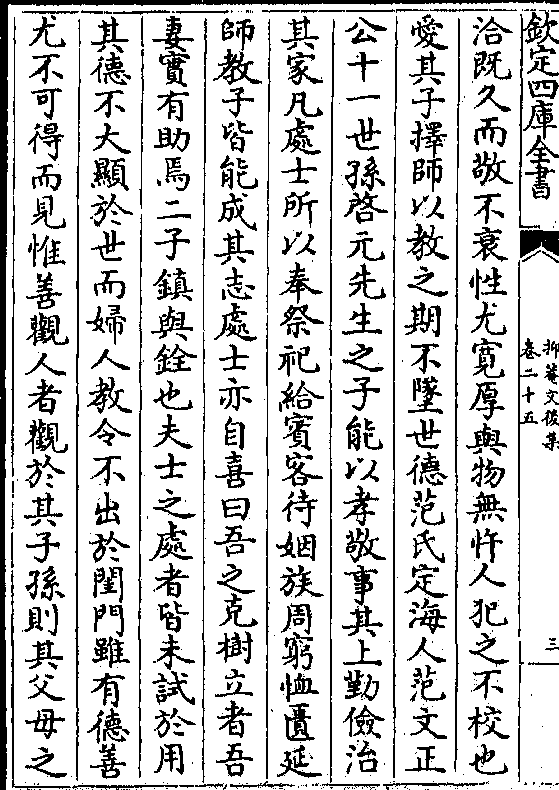 欽定四庫全書
抑菴文後集
卷二十五
三
洽既久而敬不衰性尤寛厚與物無忤人犯之不校也
愛其子擇師以教之期不墜世德范氏定海人范文正
公十一世孫啓元先生之子能以孝敬事其上勤儉治
其家凡處士所以奉祭祀給賓客待姻族周窮恤匱延
師教子皆能成其志處士亦自喜曰吾之克樹立者吾
妻實有助焉二子鎮與銓也夫士之處者皆未試於用
其德不大顯於世而婦人教令不出於閨門雖有德善
尤不可得而見惟善觀人者觀於其子孫則其父母之